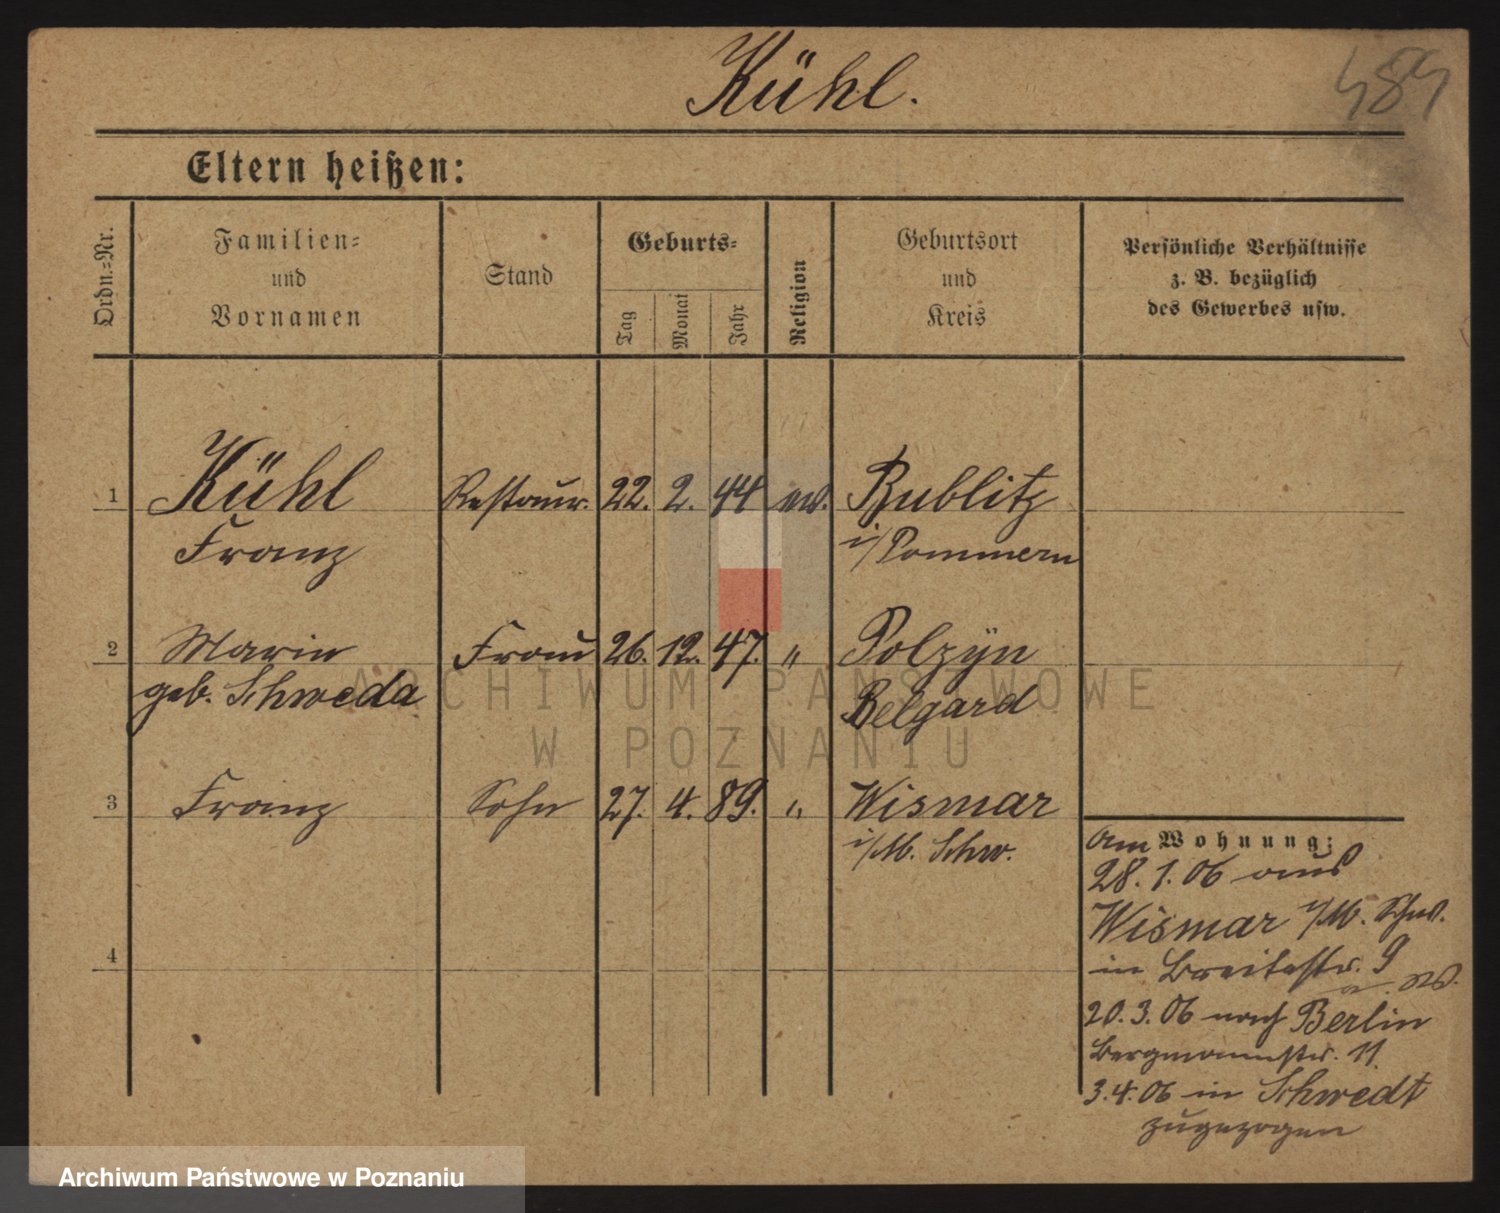 Kühl.
484
Eltern heißen:
Ordn.-Nr.
Familien-
und
Vornamen
Stand
Geburts-
Tag
Monat
Jahr
Religion
Geburtsort
und
Kreis
Persönliche Verhältnisse
z. B. bezüglich
des Gewerbes usw.
1 Kühl Restaur. 22. 2. 44 ev. Bublitz
Franz i/Pommern
2 Marie Frau 26. 12. 47. " Polzÿn
geb. Schweda Belgard
3 Franz Sohn 27. 4. 89. " Wismar
i/M. Schw.
4
Wohnung:
am
28.1.06 aus
Wismar i/M. Schw.
in Breitestr. 9
20.3.06 nach Berlin
Bergmannstr. 11
3.4.06 in Schwedt
zugezogen
ARCHIWUM PAŃSTWOWE
W POZNANIU
Archiwum Państwowe w Poznaniu